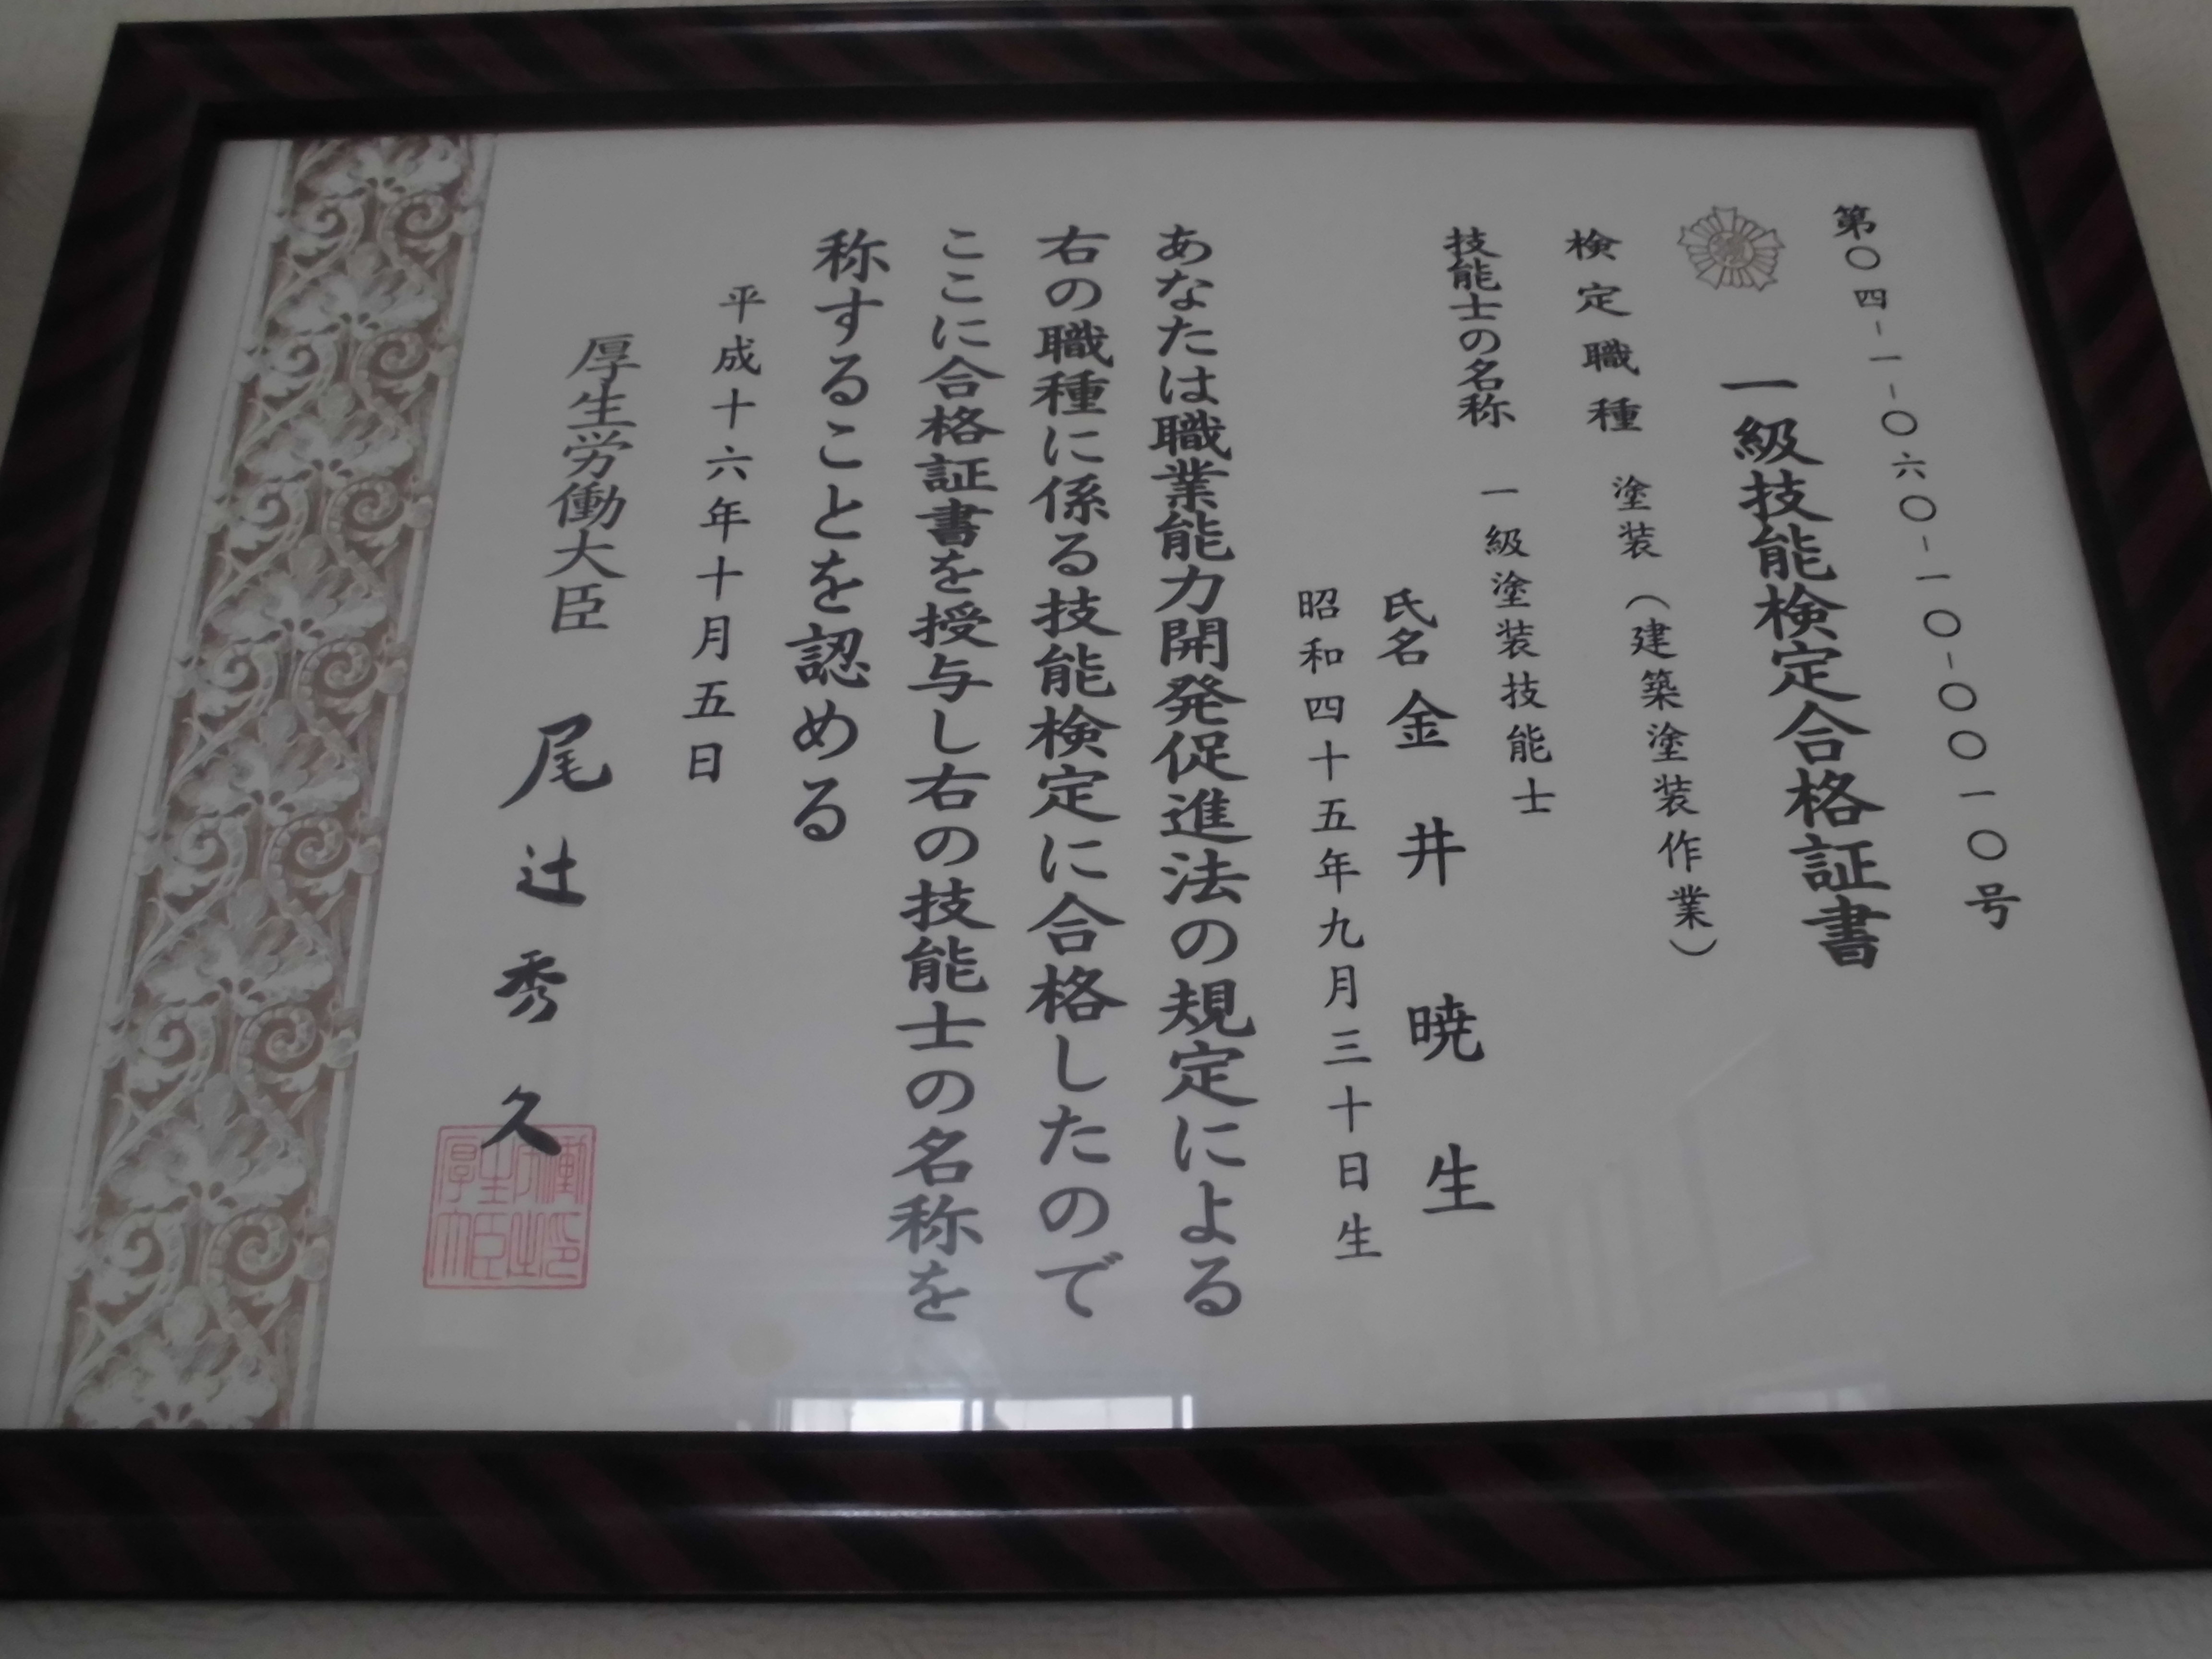 第〇四-一-〇六〇-一〇-〇〇一〇号
一級技能検定合格証書
検定職種 塗装（建築塗装作業）
技能士の名称 一級塗装技能士
氏名 金井暁生
昭和四十五年九月三十日生
あなたは職業能力開発促進法の規定による
右の職種に係る技能検定に合格したので
ここに合格証書を授与し右の技能士の名称を
称することを認める
平成十六年十月五日
厚生労働大臣 尾辻秀久
厚生労働大臣之印